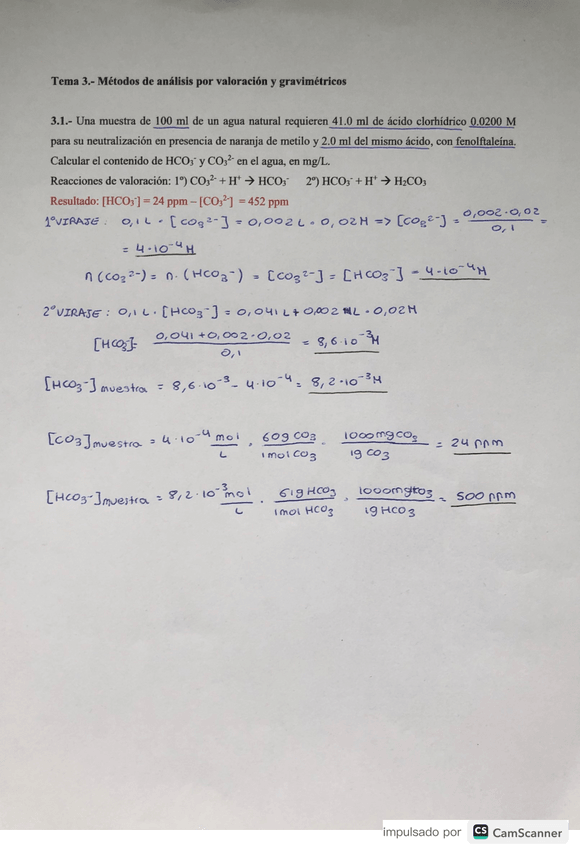 Tema 3.- Métodos de análisis por valoración y gravimétricos
3.1.- Una muestra de 100 ml de un agua natural requieren 41.0 ml de ácido clorhídrico 0.0200 M
para su neutralización en presencia de naranja de metilo y 2.0 ml del mismo ácido, con fenolftaleína.
Calcular el contenido de HCO₃⁻ y CO₃²⁻ en el agua, en mg/L.
Reacciones de valoración: 1º) CO₃²⁻ + H⁺ → HCO₃⁻ 2º) HCO₃⁻ + H⁺ → H₂CO₃
Resultado: [HCO₃⁻] = 24 ppm – [CO₃²⁻] = 452 ppm
1º VIRAJE: 0,1 L · [CO₃²⁻] = 0,002 L · 0,02 M => [CO₃²⁻] = 0,002·0,02 / 0,1 =
= 4·10⁻⁴ M
n(CO₃²⁻) = n·(HCO₃⁻) = [CO₃²⁻] = [HCO₃⁻] = 4·10⁻⁴ M
2º VIRAJE: 0,1 L · [HCO₃⁻] = 0,041 L + 0,002 L · 0,02 M
[HCO₃⁻] = 0,041 + 0,002 · 0,02 / 0,1 = 8,6·10⁻³ M
[HCO₃⁻] muestra = 8,6·10⁻³ – 4·10⁻⁴ = 8,2·10⁻³ M
[CO₃] muestra = 4·10⁻⁴ mol / L · 60g CO₃ / 1mol CO₃ · 1000mg CO₃ / 1g CO₃ = 24 ppm
[HCO₃⁻] muestra = 8,2·10⁻³ mol / L · 61g HCO₃ / 1mol HCO₃ · 1000mg HCO₃ / 1g HCO₃ = 500 ppm
impulsado por CS CamScanner